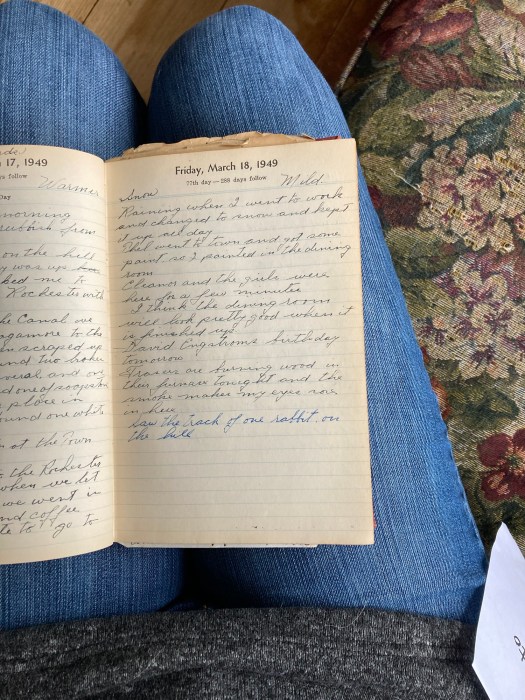 17, 1949
ys follow Warmer
morning
rubbish from
on the hill
y was up
ked me to
Rochester with
he Canal we
agamore to the
n scraped up
and two broken
several and on
d one of
place in
ound one white
at the Town
the Rochester
when we let
we went in
nd coffee
te to go to
Friday, March 18, 1949
77th day—288 days follow
Snow Mild
Raining when I went to work
and changed to snow and kept
it up all day
Phil went to town and got some
paint so I painted in the dining
room
Eleanor and the girls were
here for a few minutes
I think the dining room
will look pretty good when it
is finished up
David Engstroms birthday
tomorrow
Frasers are burning wood in
their furnace tonight and the
smoke makes my eyes
in here
Saw the track of one rabbit on
the hill